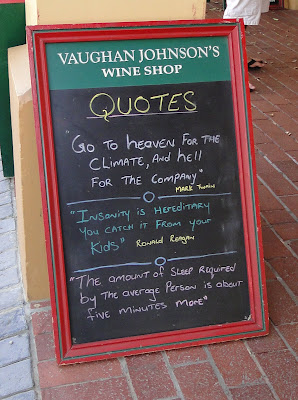 VAUGHAN JOHNSON'S
WINE SHOP
QUOTES
"Go to heaven for the
climate, and hell
for the company"
Mark Twain
"Insanity is hereditary
you catch it from your
kids" Ronald Reagan
"The amount of sleep required
by the average person is about
five minutes more"